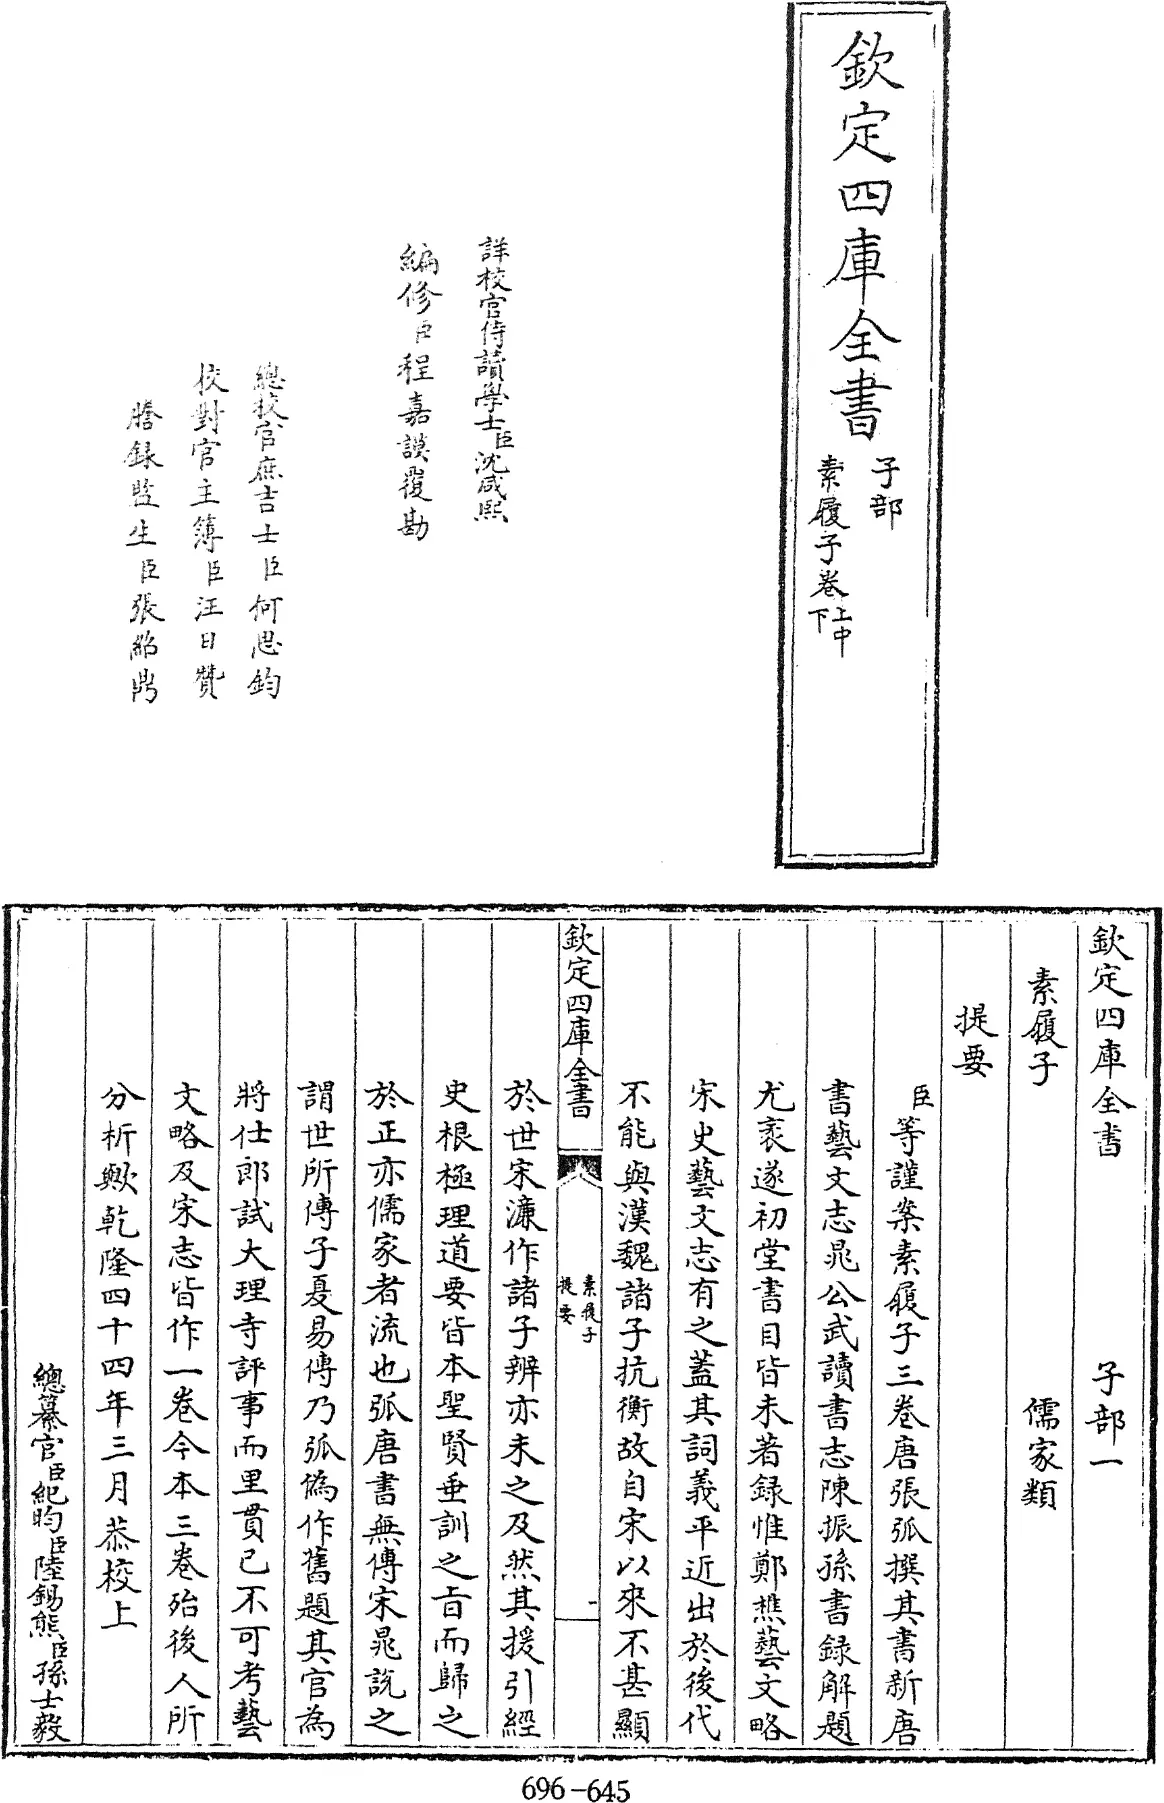 欽定四庫全書
子部
素履子卷上中下
詳校官侍讀學士臣沈咸熙
編修臣程嘉謨覆勘
總校官庶吉士臣何思鈞
校對官主簿臣汪日贊
謄錄監生臣張紹鼎
欽定四庫全書 子部一
素履子 儒家類
提要
臣等謹案素履子三卷唐張弧撰其書新唐
書藝文志晁公武讀書志陳振孫書録解題
尤袤遂初堂書目皆未著録惟鄭樵藝文略
宋史藝文志有之蓋其詞義平近出於後代
不能與漢魏諸子抗衡故自宋以來不甚顯
欽定四庫全書
素履子
提要
一
於世宋濂作諸子辨亦未之及然其援引經
史根極理道要皆本聖賢垂訓之旨而歸之
於正亦儒家者流也弧唐書無傳宋晁説之
謂世所傳子夏易傳乃弧偽作舊題其官為
將仕郎試大理寺評事而里貫已不可考藝
文略及宋志皆作一卷今本三卷殆後人所
分析歟乾隆四十四年三月恭校上
總纂官臣紀昀臣陸錫熊臣孫士毅
696-645